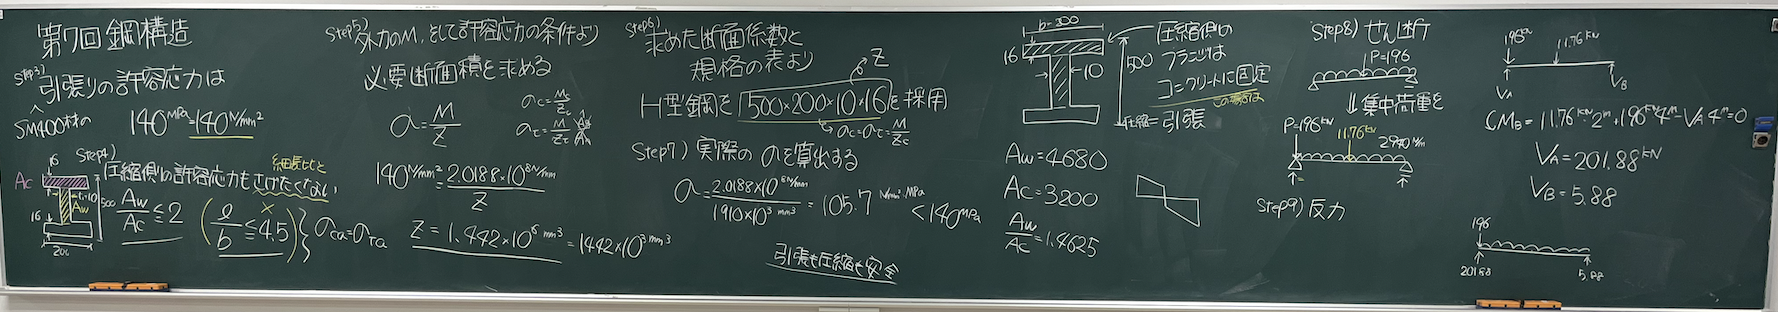 第7回 鋼構造
Step3) 引張りの許容応力は
SM400材の 140MPa=140N/mm²
Step4)
圧縮側の許容応力もさげたくない
細長比と
16
Ac
t=10
500
Aw
16
200
Aw/Ac ≦ 2
(ℓ/b ≦ 4.5)
σca=σta
Step5) 外力のM, そして許容応力の条件より
必要断面積を求める
σ = M/Z
σc = Mc/Zc
140N/mm² = 2.0188×10⁸N/mm / Z
Z = 1.442×10⁶mm³ = 1442×10³mm³
Step6) 求めた断面係数と
規格の表より
Z
H型鋼を 500×200×10×16 を採用
σc=σt=M/Z
Step7) 実際の σを算出する
σ = 2.0188×10⁸N/mm / 1910×10³mm³ = 105.7 N/mm², MPa < 140MPa
引張も圧縮も安全
b=200
16
10
500
圧縮側の
フランジは
コンクリートに固定
この場合は
圧縮=引張
Aw=4680
Ac=3200
Aw/Ac=1.4625
Step8) せん断
P=196
↓集中荷重を
P=196kN
11.76kN
2940N/m
Step9) 反力
196kN
11.76kN
VA
VB
ΣMB=11.76kN 2m+196kN 4m-VA 4m=0
VA=201.88kN
VB=5.88
196
201.88
5.88